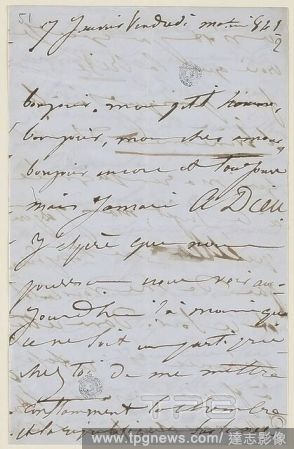 51
7 Janvier Vendredi matin 8h 1/2
bonjour, mon petit homme,
bonjour, mon cher amour
bonjour encore et toujours
mais jamais A Dieu
J'espère que nous
pourrons nous voir au-
jourd'hui à moins que
ce ne soit un parti pris
chez toi de me mettre
constamment
TPG
www.tpgnews.com / 達志影像